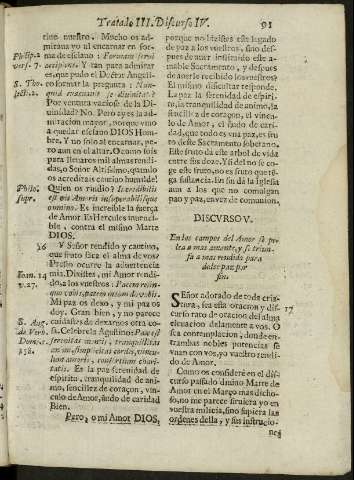 Tratado III. Discurso IV. 91
tino nuestro. Mucho os ad-
mirava yo al encarnar en for-
ma de esclavo : Formam servi
accipiens. Y tan para admirar
es, que pudo el Doctor Angeli-
co formar la pregunta : Nun-
quid
Por ventura vaziose de la Di-
uinidad? No. Pero oy es la ad-
miracion mayor, porque vino
a quedar esclauo DIOS Hom-
bre. Y no solo al encarnar, pe-
ro aun en el altar. O como sois
para lleuaros mil almas rendi-
das, o Señor Altissimo, quando
os acreditais cautiuo humilde!
Quien os rindio? Incredibilis
est vis Amoris insuperabilisque
omnino. Es increible la fuerça
de Amor. Es Hercules inuenci-
ble, contra el mismo Marte
DIOS.
Y Señor rendido y cautiuo,
que fruto saca el alma de vos?
Presto ocurre la aduertencia
mia. Dixistes, mi Amor rendi-
do, a los vuestros : Pacem relin-
quo vobis, pacem meam do vobis.
Mi paz os dexo, y mi paz os
doy. Gran bien, y no parece
cuidastes de dexaros otra co-
sa. Celebrela Agustino: Pax est
serenitas mentis, tranquillitas
animi, simplicitas cordis, vincu-
lum amoris, consortium chari-
tatis. Es la paz serenidad de
espiritu, tranquilidad de ani-
mo, senzillez de coraçon, vin-
culo de Amor, lado de caridad
Bien.
Pero, o mi Amor DIOS,
Philip. 2
vers. 7.
S. Tho.
lect. 2.
Philo.
supr.
16
Ioan. 14
v. 27.
S. Aug.
de Verb.
Domini
58.
porque no hizistes esse legado
de paz a los vuestros, sino des-
pues de auer instituido este ad-
mirable Sacramento, y despues
de auerle recibido los vuestros?
El mismo discurrir responde.
La paz la serenidad de espiri-
tu, la tranquilidad de animo, la
senzillez de coraçon, el vincu-
lo de Amor, el lado de cari-
dad, que todo es vna paz, es fru-
to deste Sacramento soberano.
Este fruto da este arbol de vida
entre sus doze. Y si del no se co-
ge este fruto, no es fruto que ten-
ga sustancia. Sin fin dà la Iglesia
aun a los que no comulgan
pax y paz, en vez de comunion.
DISCVRSO V.
En los campos del Amor se pe-
lea a mas amante, y se triun-
fa a mas rendido para
dulce paz por
fin.
SEñor adorado de toda cria-
tura, sea esta oracion y dis-
curso rato de oracion del alma
eleuacion dulcemente a vos. O
sea contemplacion, donde en-
trambas nobles potencias se
vean con vos, yo vuestro rendi-
do de Amor.
Como os consideré en el dis-
curso passado diuino Marte de
Amor en el Março mas dicho-
so, no me parece siruiera yo en
vuestra milicia, sino supiera las
ordenes della, y sus instrucio-
nes
17